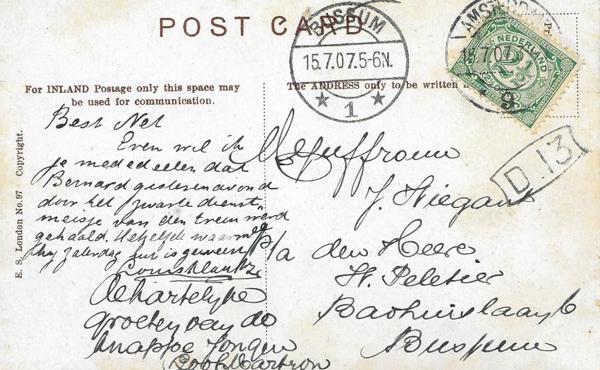 POST CARD
BUSSUM
15.7.07.5-6N.
1
AMSTERDAM
15.7.07
NEDERLAND
2½
For INLAND Postage only this space may
be used for communication.
The ADDRESS only to be written
E. S. London No. 97 Copyright.
D.13
Best Net
Even wil ik
je mededeelen dat
Bernard gisterenavond
door het "zwarte dienst-
meisje van den trein werd
gehaald. Hetzelfde waarmee
hij Zaterdag
De hartelijke
groeten van de
knappe Jongen
Mejuffrouw
J. Wiegant
p/a den Heere
H. Peletier
6
Bussum